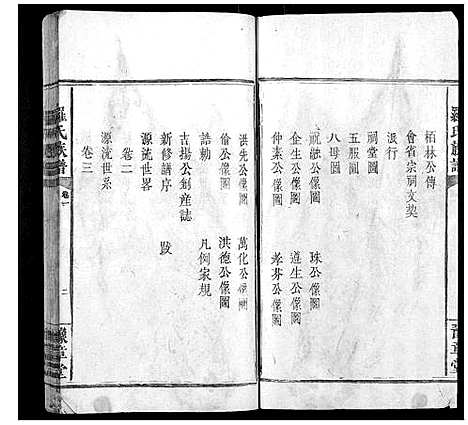 羅氏族譜
豫章堂
栢林公傳
會省宗祠文契
派行
祠堂圖
五服圖
八母圖
祝融公像圖 珠公像圖
企生公像圖 遵生公像圖
仲素公像圖 孝芬公像圖
洪先公像圖 萬化公像圖
倫公像圖 洪德公像圖
誥勅 凡例家規
吉揚公創産誌
新修譜序 跋
卷二
源流世畧
源流世系
卷三
羅氏族譜 卷一 二 豫章堂